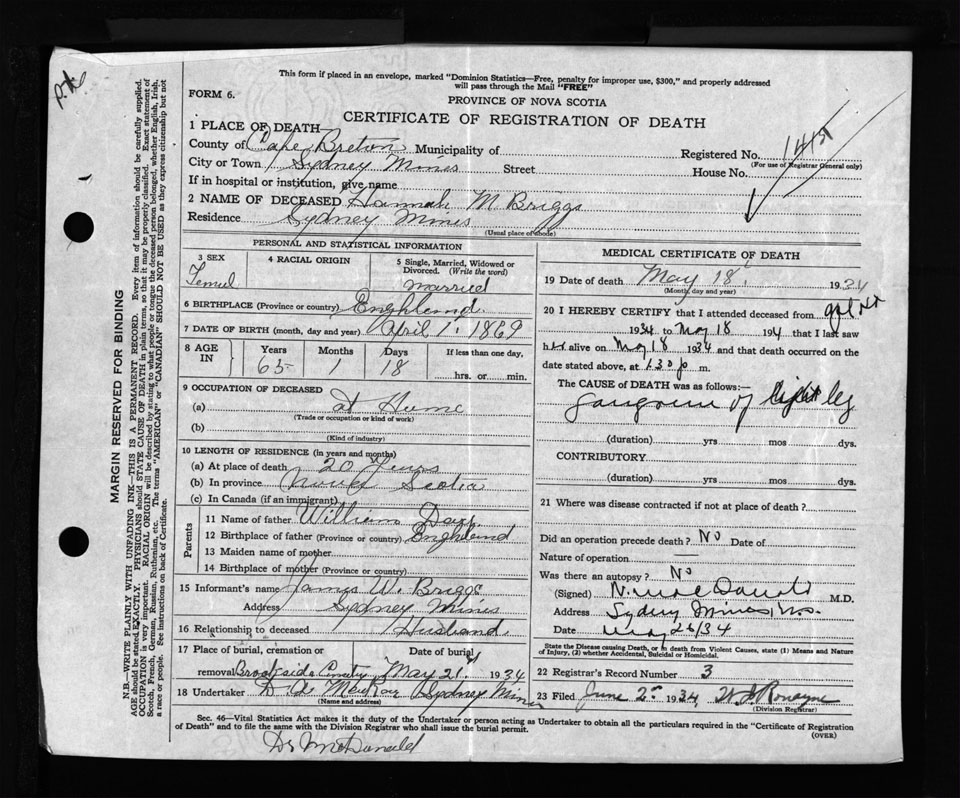 This form if placed in an envelope, marked "Dominion Statistics—Free, penalty for improper use, $300," and properly addressed
will pass through the Mail "FREE"
FORM 6.
PROVINCE OF NOVA SCOTIA
CERTIFICATE OF REGISTRATION OF DEATH
1 PLACE OF DEATH
County of Cape Breton Municipality of
Registered No. 1415
(For use of Registrar General only)
City or Town Sydney Mines Street House No.
If in hospital or institution, give name
2 NAME OF DECEASED Hannah M Briggs
Residence Sydney Mines
(Usual place of abode)
PERSONAL AND STATISTICAL INFORMATION
3 SEX Femul
4 RACIAL ORIGIN
5 Single, Married, Widowed or
Divorced. (Write the word)
married
6 BIRTHPLACE (Province or country) Enghlend
7 DATE OF BIRTH (month, day and year) April 1. 1869
8 AGE IN Years Months Days If less than one day,
65 1 18 hrs. or min.
9 OCCUPATION OF DECEASED
(a) at Hume
(Trade or occupation or kind of work)
(b)
(Kind of industry)
10 LENGTH OF RESIDENCE (in years and months)
(a) At place of death 20 Years
(b) In province Nova Scotia
(c) In Canada (if an immigrant)
Parents
11 Name of father William
12 Birthplace of father (Province or country) Enghlend
13 Maiden name of mother
14 Birthplace of mother (Province or country)
15 Informant's name James W. Briggs
Address Sydney Mines
16 Relationship to deceased Husband
17 Place of burial, cremation or Date of burial
removal Brookside Cmetry May 21st 1934
18 Undertaker Sydney Mines
(Name and address)
MEDICAL CERTIFICATE OF DEATH
19 Date of death May 18 1934
(Month, day and year)
20 I HEREBY CERTIFY that I attended deceased from
1934 to May 18 1934 that I last saw
her alive on May 18 1934 and that death occurred on the
date stated above, at 1.30 p m.
The CAUSE OF DEATH was as follows:—
Gangrene of Right leg
(duration) yrs mos dys.
CONTRIBUTORY
(duration) yrs mos dys.
21 Where was disease contracted if not at place of death?
Did an operation precede death? No Date of
Nature of operation —
Was there an autopsy? No
(Signed) N. MacDonald M.D.
Address Sydney Mines, N.S.
Date May 26/34
State the Disease causing Death, or in death from Violent Causes, state (1) Means and Nature
of Injury, (2) whether Accidental, Suicidal or Homicidal.
22 Registrar's Record Number 3
23 Filed June 2nd 1934
(Division Registrar)
Sec. 46—Vital Statistics Act makes it the duty of the Undertaker or person acting as Undertaker to obtain all the particulars required in the "Certificate of Registration
of Death" and to file the same with the Division Registrar who shall issue the burial permit.
(OVER)
Dr McDonald
MARGIN RESERVED FOR BINDING
N.B.—WRITE PLAINLY WITH UNFADING INK—THIS IS A PERMANENT RECORD. Every item of information should be carefully supplied.
AGE should be stated EXACTLY. PHYSICIANS should STATE CAUSE OF DEATH in plain terms, so that it may be properly classified. Exact statement of
OCCUPATION is very important. RACIAL ORIGIN will be described by stating to what people or tongue the deceased person belonged, whether English, Irish,
Scotch, French, German, Russian, Ruthenian, etc. The terms "AMERICAN" or "CANADIAN" SHOULD NOT BE USED as they express citizenship but not
a race or people. See instructions on back of Certificate.